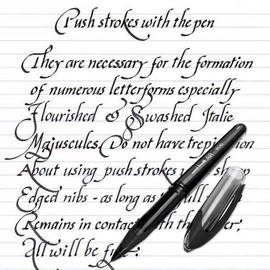 Push strokes with the pen
They are necessary for the formation
of numerous letterforms especially
Flourished & Swashed Italic
Majuscules. Do not have trepi
About using push strokes sh
Edged nibs - as long as
Remains in contact
All will be fine